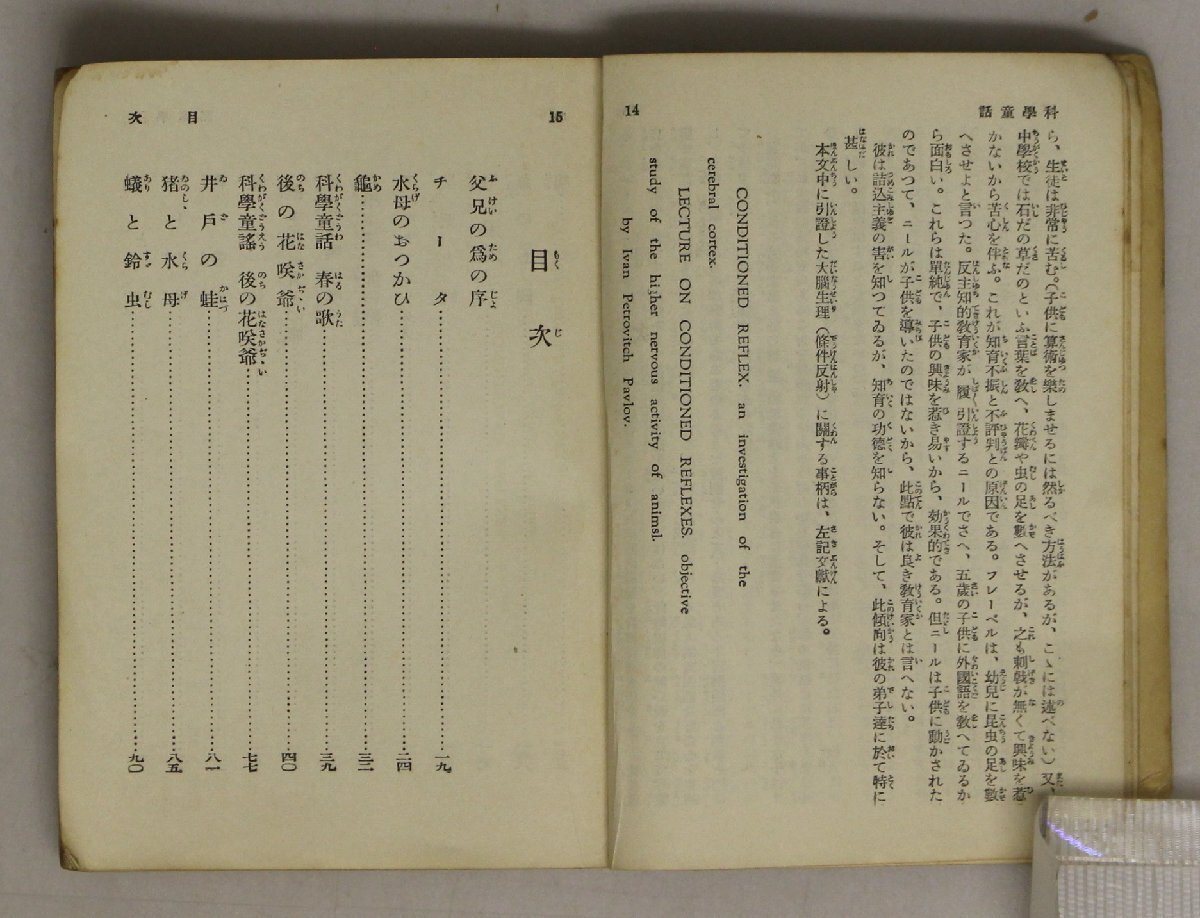 科學童話
14
ら、生徒は非常に苦む。(子供に算術を樂しませるには然るべき方法があるが、こゝには述べない) 又、
中學校では石だの草だのといふ言葉を敎へ、花瓣や虫の足を數へさせるが、之も刺戟が無くて興味を惹
かないから苦心を伴ふ。これが知育不振と不評判との原因である。フレーベルは、幼兒に昆虫の足を數
へさせよと言つた。反主知的敎育家が屢引證するニールでさへ、五歲の子供に外國語を敎へてゐるか
ら面白い。これらは單純で、子供の興味を惹き易いから、効果的である。但ニールは子供に動かされた
のであつて、ニールが子供を導いたのではないから、此點で彼は良き敎育家とは言へない。
彼は詰込主義の害を知つてゐるが、知育の功德を知らない。そして、此傾向は彼の弟子達に於て特に
甚しい。
本文中に引證した大腦生理(條件反射)に關する事柄は、左記文獻による。
CONDITIONED REFLEX. an investigation of the
cerebral cortex.
LECTURE ON CONDITIONED REFLEXES. objective
study of the higher nervous activity of animsl.
by Ivan Petrovitch Pavlov.
目次
15
目次
父兄の爲の序
チータ……一九
水母のおつかひ……二四
龜……三二
科學童話 春の歌……三九
後の花咲爺……四〇
科學童謠 後の花咲爺……七七
井戶の蛙……八一
猪と水母……八五
蟻と鈴虫……九〇